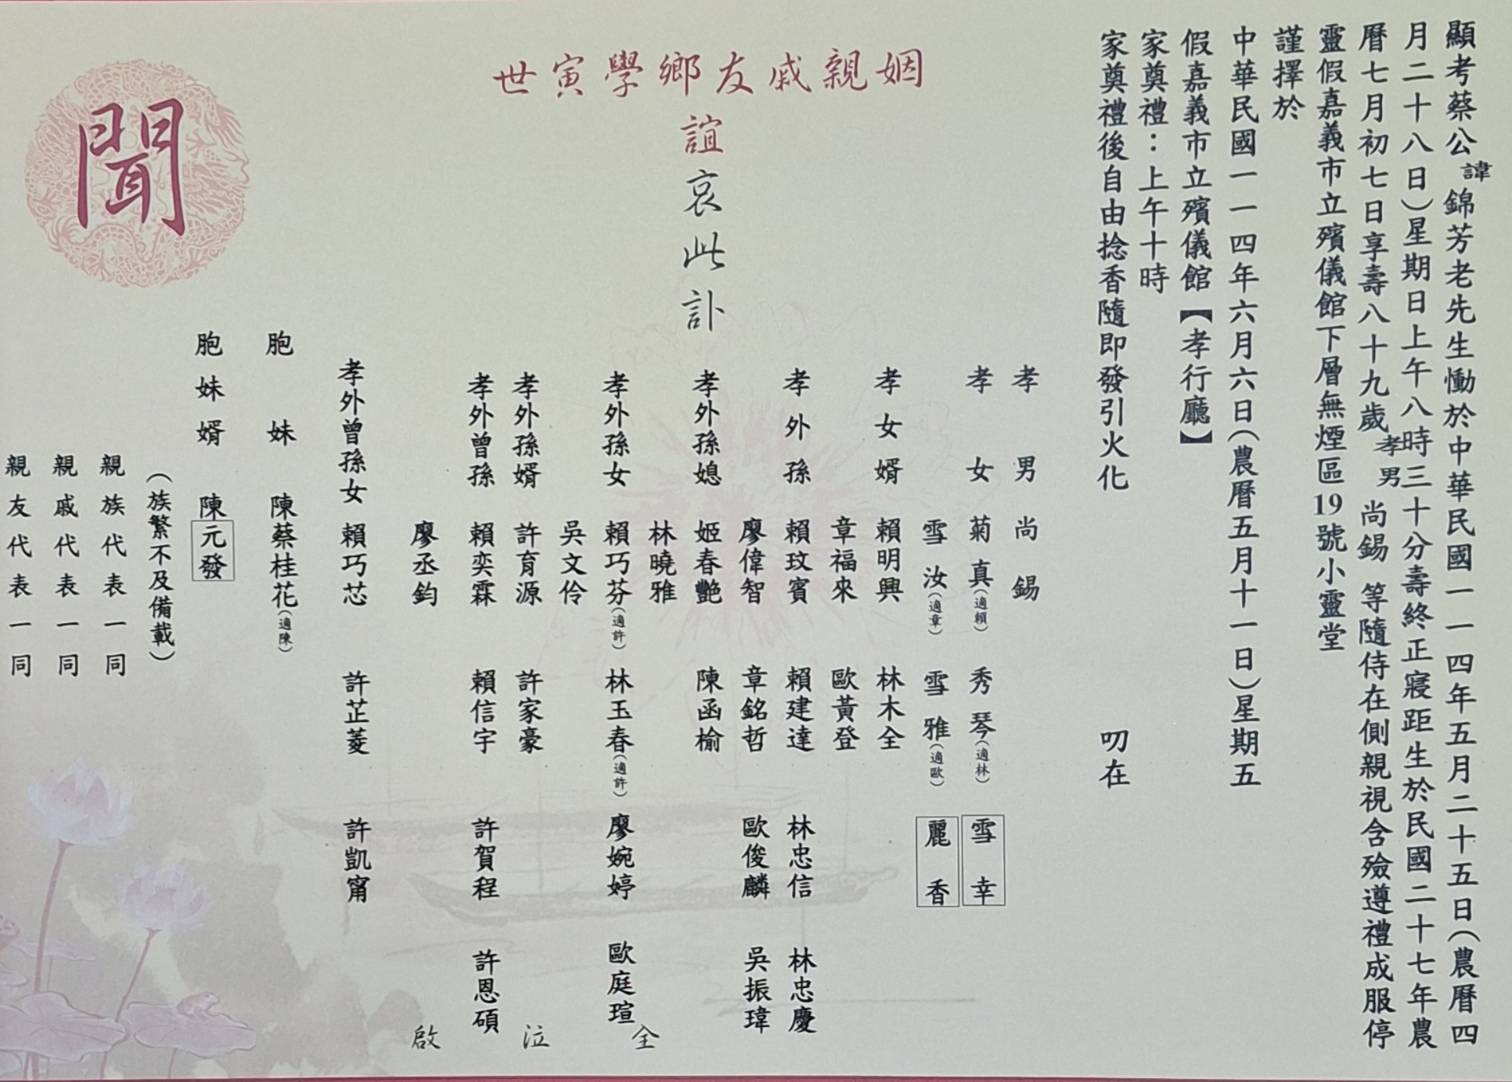 顯考蔡公諱錦芳老先生慟於中華民國一一四年五月二十五日(農曆四
月二十八日)星期日上午八時三十分壽終正寢距生於民國二十七年農
曆七月初七日享壽八十九歲孝男尚錫等隨侍在側親視含殮遵禮成服停
靈假嘉義市立殯儀館下層無煙區19號小靈堂
謹擇於
中華民國一一四年六月六日(農曆五月十一日)星期五
假嘉義市立殯儀館【孝行廳】
家奠禮：上午十時
家奠禮後自由捻香隨即發引火化
叨在
姻親戚友鄉學寅世
誼哀此訃
聞
孝男 尚錫
孝女 菊真(適賴) 秀琴(適林) 雪幸
雪汝(適章) 雪雅(適歐) 麗香
孝女婿 賴明興 林木全
章福來 歐黃登
孝外孫 賴玟賓 賴建達 林忠信 林忠慶
廖偉智 章銘哲 歐俊麟 吳振瑋
孝外孫媳 姬春艷 陳函榆
林曉雅
孝外孫女 賴巧芬(適許) 林玉春(適許) 廖婉婷 歐庭瑄
吳文伶
孝外孫婿 許育源 許家豪
孝外曾孫 賴奕霖 賴信宇 許賀程 許恩碩
廖丞鈞
孝外曾孫女 賴巧芯 許芷菱 許凱甯
胞妹 陳蔡桂花(適陳)
胞妹婿 陳元發
(族繁不及備載)
親族代表一同
親戚代表一同
親友代表一同
仝泣啟